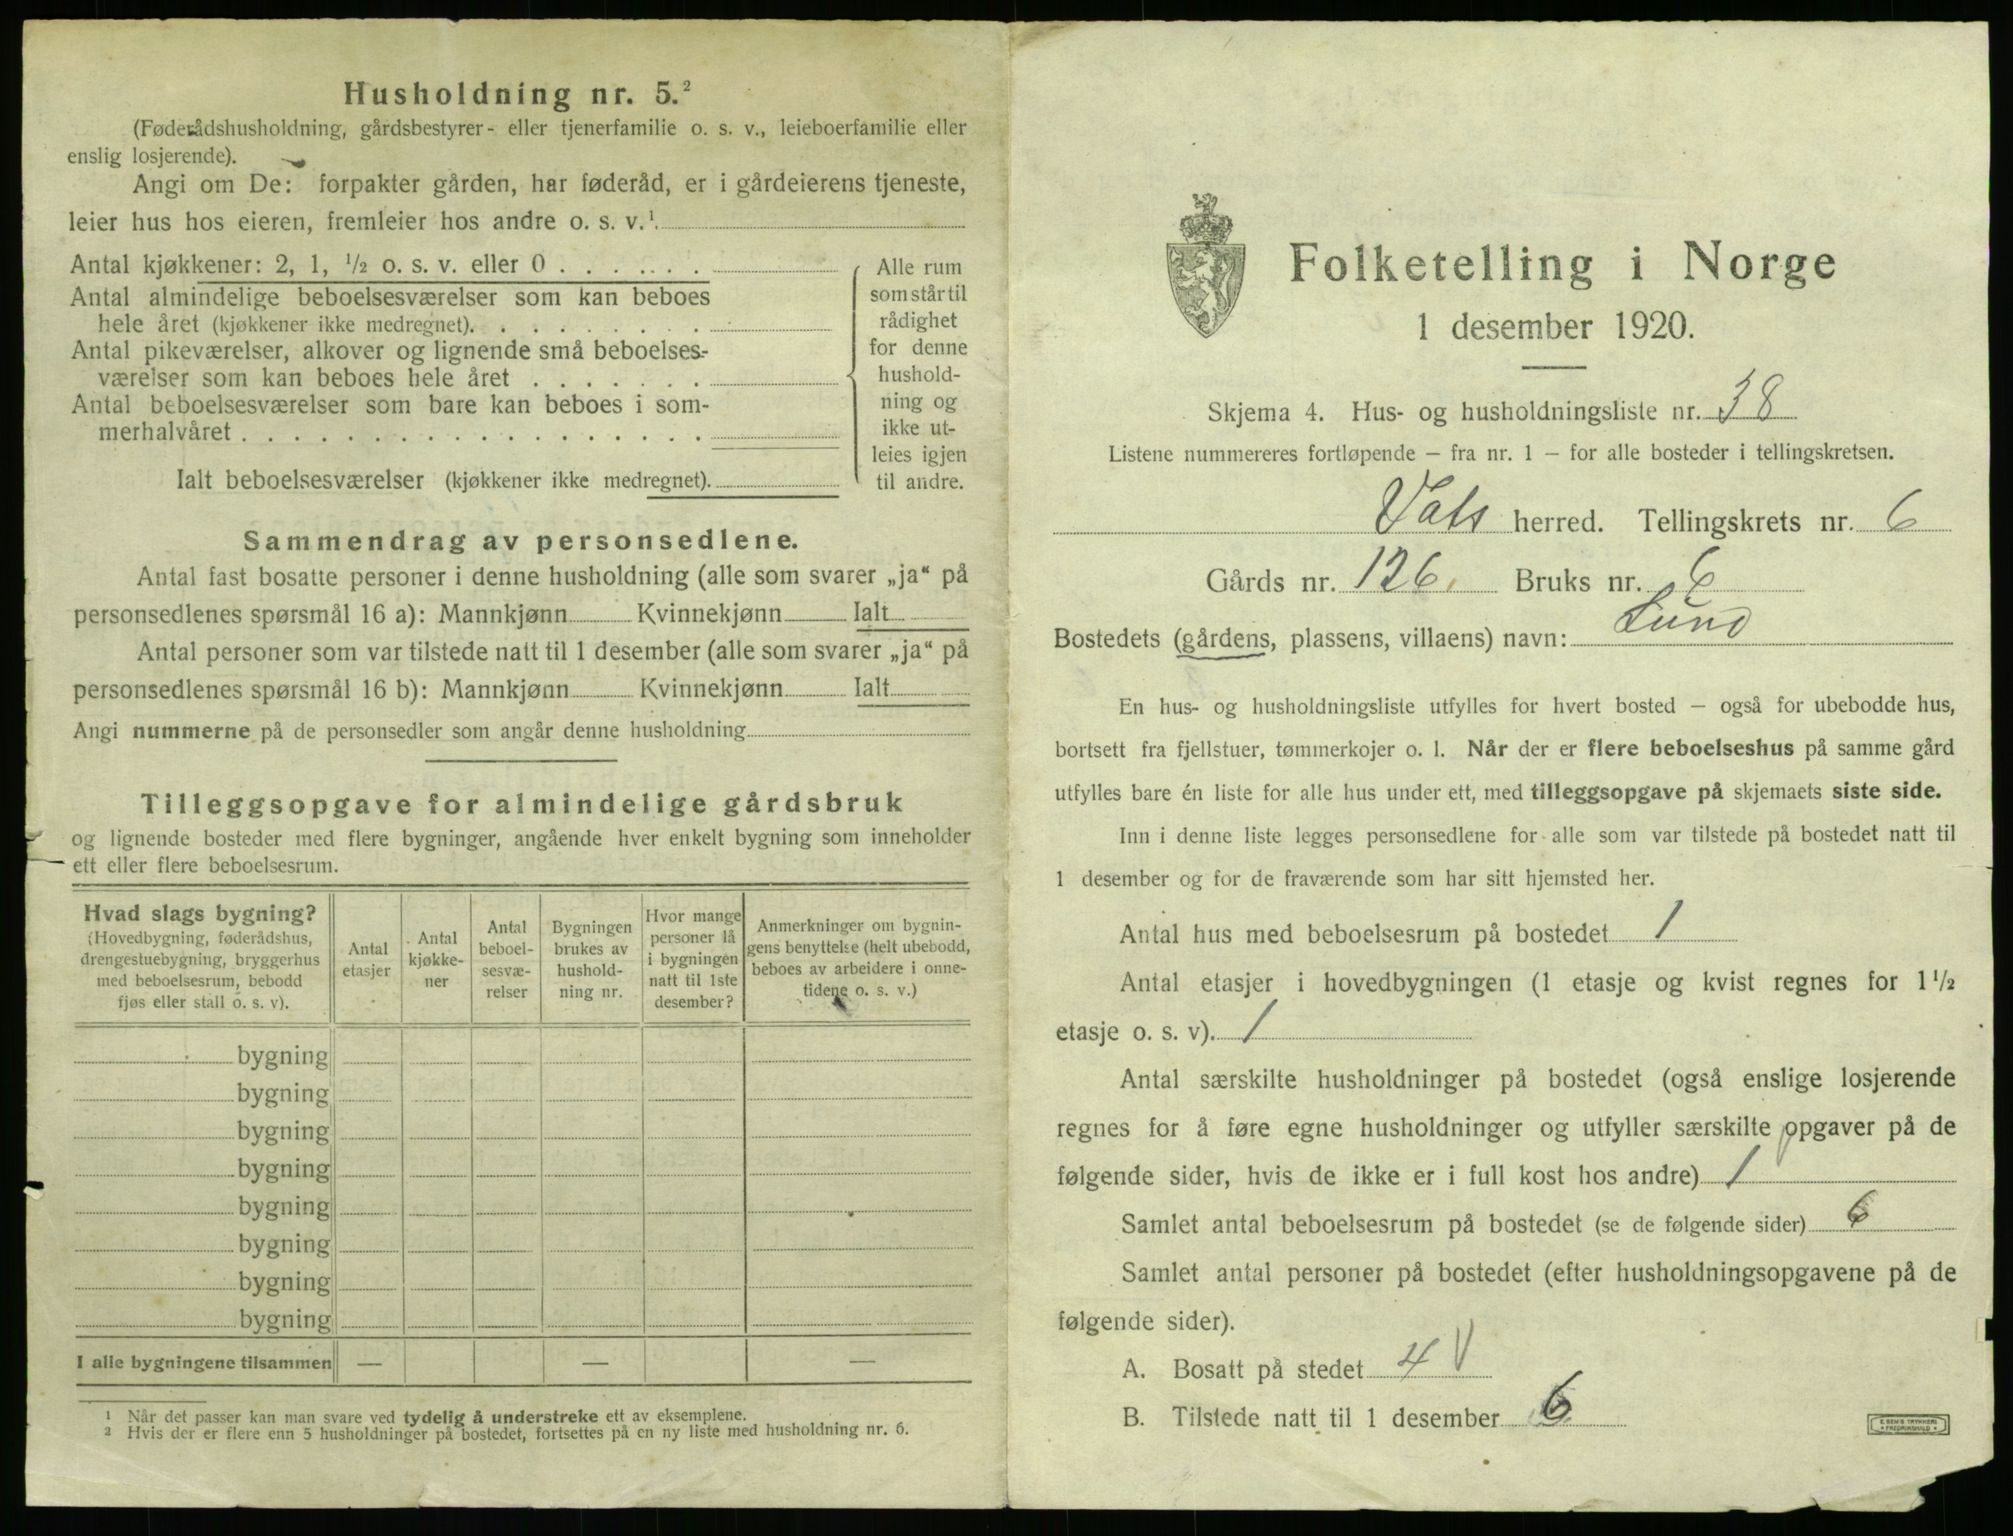 Husholdning nr. 5.²
(Føderådshusholdning, gårdsbestyrer- eller tjenerfamilie o. s. v., leieboerfamilie eller
enslig losjerende).
Angi om De: forpakter gården, har føderåd, er i gårdeierens tjeneste,
leier hus hos eieren, fremleier hos andre o. s. v.¹
Antal kjøkkener: 2, 1, ½ o. s. v. eller 0
Antal almindelige beboelsesværelser som kan beboes
hele året (kjøkkener ikke medregnet).
Antal pikeværelser, alkover og lignende små beboelses-
værelser som kan beboes hele året
Antal beboelsesværelser som bare kan beboes i som-
merhalvåret
Ialt beboelsesværelser (kjøkkener ikke medregnet).
Alle rum
som står til
rådighet
for denne
hushold-
ning og
ikke ut-
leies igjen
til andre.
Sammendrag av personsedlene.
Antal fast bosatte personer i denne husholdning (alle som svarer „ja“ på
personsedlenes spørsmål 16 a): Mannkjønn Kvinnekjønn Ialt
Antal personer som var tilstede natt til 1 desember (alle som svarer „ja“ på
personsedlenes spørsmål 16 b): Mannkjønn Kvinnekjønn Ialt
Angi nummerne på de personsedler som angår denne husholdning
Tilleggsopgave for almindelige gårdsbruk
og lignende bosteder med flere bygninger, angående hver enkelt bygning som inneholder
ett eller flere beboelsesrum.
Hvad slags bygning?
(Hovedbygning, føderådshus,
drengestuebygning, bryggerhus
med beboelsesrum, bebodd
fjøs eller stall o. s. v).
Antal
etasjer
Antal
kjøkke-
ner
Antal
beboel-
sesvæ-
relser
Bygningen
brukes av
hushold-
ning nr.
Hvor mange
personer lå
i bygningen
natt til 1ste
desember?
Anmerkninger om bygnin-
gens benyttelse (helt ubebodd,
beboes av arbeidere i onne-
tidene o. s. v.)
bygning
bygning
bygning
bygning
bygning
bygning
bygning
bygning
I alle bygningene tilsammen — — —
¹ Når det passer kan man svare ved tydelig å understreke ett av eksemplene.
² Hvis der er flere enn 5 husholdninger på bostedet, fortsettes på en ny liste med husholdning nr. 6.
Folketelling i Norge
1 desember 1920.
Skjema 4. Hus- og husholdningsliste nr. 38
Listene nummereres fortløpende — fra nr. 1 — for alle bosteder i tellingskretsen.
Vats herred. Tellingskrets nr. 6
Gårds nr. 126. Bruks nr. 6
Bostedets (gårdens, plassens, villaens) navn: Lund
En hus- og husholdningsliste utfylles for hvert bosted — også for ubebodde hus,
bortsett fra fjellstuer, tømmerkojer o. l. Når der er flere beboelseshus på samme gård
utfylles bare én liste for alle hus under ett, med tilleggsopgave på skjemaets siste side.
Inn i denne liste legges personsedlene for alle som var tilstede på bostedet natt til
1 desember og for de fraværende som har sitt hjemsted her.
Antal hus med beboelsesrum på bostedet 1
Antal etasjer i hovedbygningen (1 etasje og kvist regnes for 1½
etasje o. s. v). 1
Antal særskilte husholdninger på bostedet (også enslige losjerende
regnes for å føre egne husholdninger og utfyller særskilte opgaver på de
følgende sider, hvis de ikke er i full kost hos andre) 1
Samlet antal beboelsesrum på bostedet (se de følgende sider) 6
Samlet antal personer på bostedet (efter husholdningsopgavene på de
følgende sider).
A. Bosatt på stedet 4 V
B. Tilstede natt til 1 desember 6